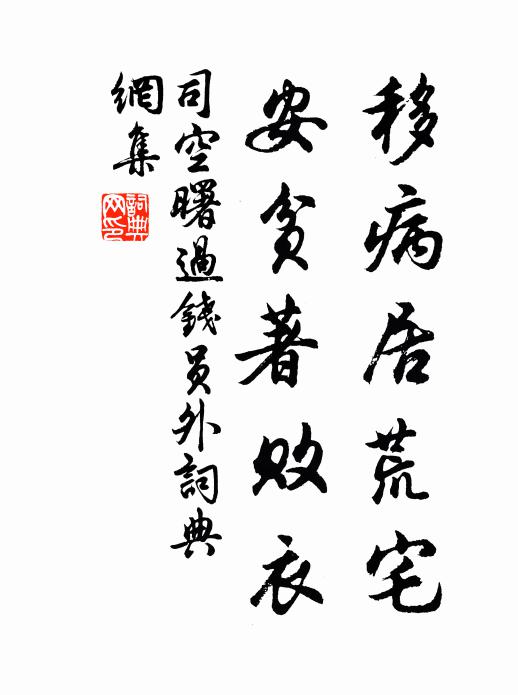 移病居荒宅
安貧著敗衣
司空曙過錢員外詞典
網集
詞典網印